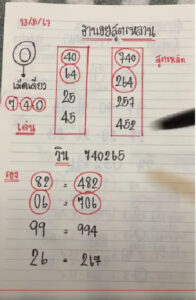 13/8/67
ฐานเขยสูตรหลาน
0
เม็ดเดียว
7 4 0
เด่น
40 740
64 264
25 257
45 452
สูตรหลัก
วิน 740265
82 = 482
06 = 706
99 = 994
26 = 267